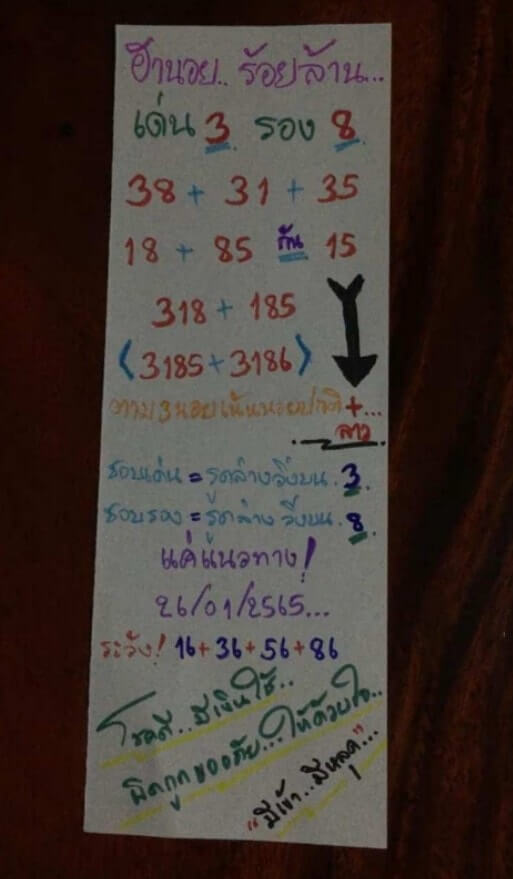 ฮานอย.. ร้อยล้าน...
เด่น 3 รอง 8
38 + 31 + 35
18 + 85 กัน 15
318 + 185
(3185 + 3186)
ตาม 3 นอยเน้นนอยปกติ +...
ลาว
ชอบเด่น = รูดล่างวิ่งบน . 3 .
ชอบรอง = รูดล่าง วิ่งบน . 8 .
แค่แนวทาง!
26/01/2565...
ระวัง! 16 + 36 + 56 + 86
โชคดี.. มีเงินใช้..
ผิดถูกขออภัย... ให้ด้วยใจ..
"มีเข้า.. มีหลุด"...